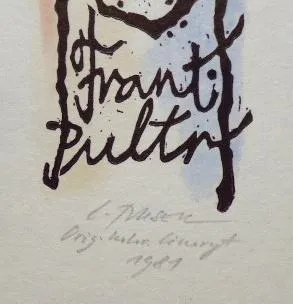 Frant
Pultr
Orig. kolor. linoryt
1981